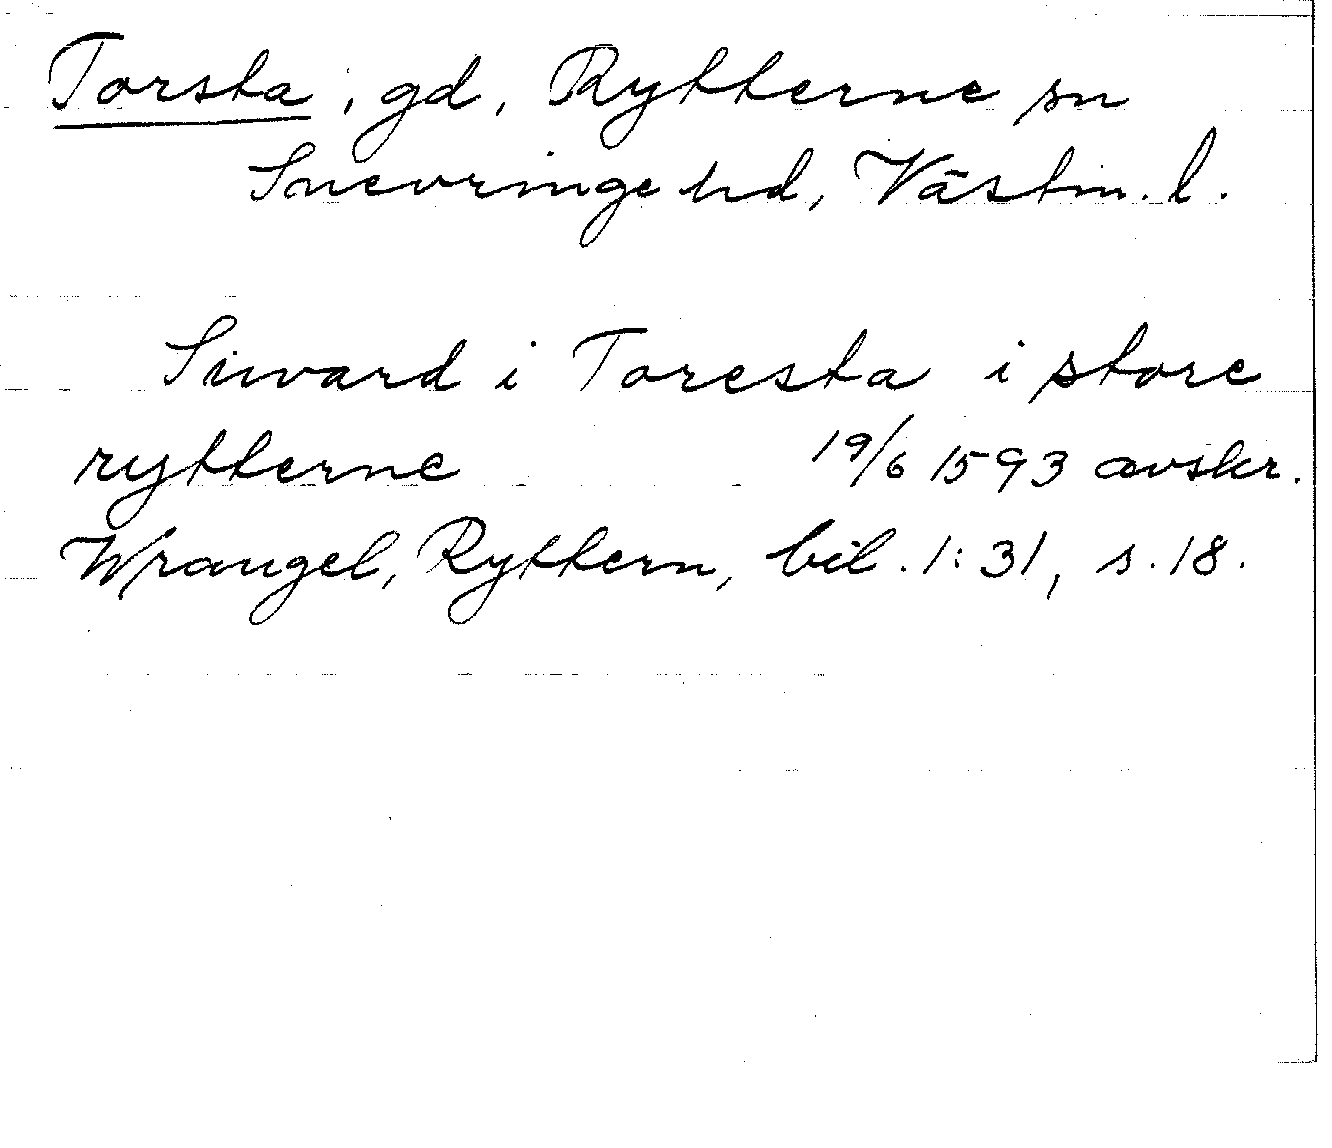 Torsta, gd, Rytterne sn
Snevringe hd, Västm. l.
Siwvard i Toresta i store
rytterne 19/6 1593 avskr.
Wrangel, Ryttern, bil. 1:31, s. 18.